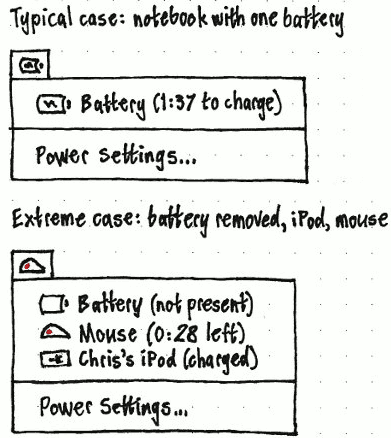 Typical case: notebook with one battery
Battery (1:37 to charge)
Power Settings...
Extreme case: battery removed, iPod, mouse
Battery (not present)
Mouse (0:28 left)
Chris's iPod (charged)
Power Settings...